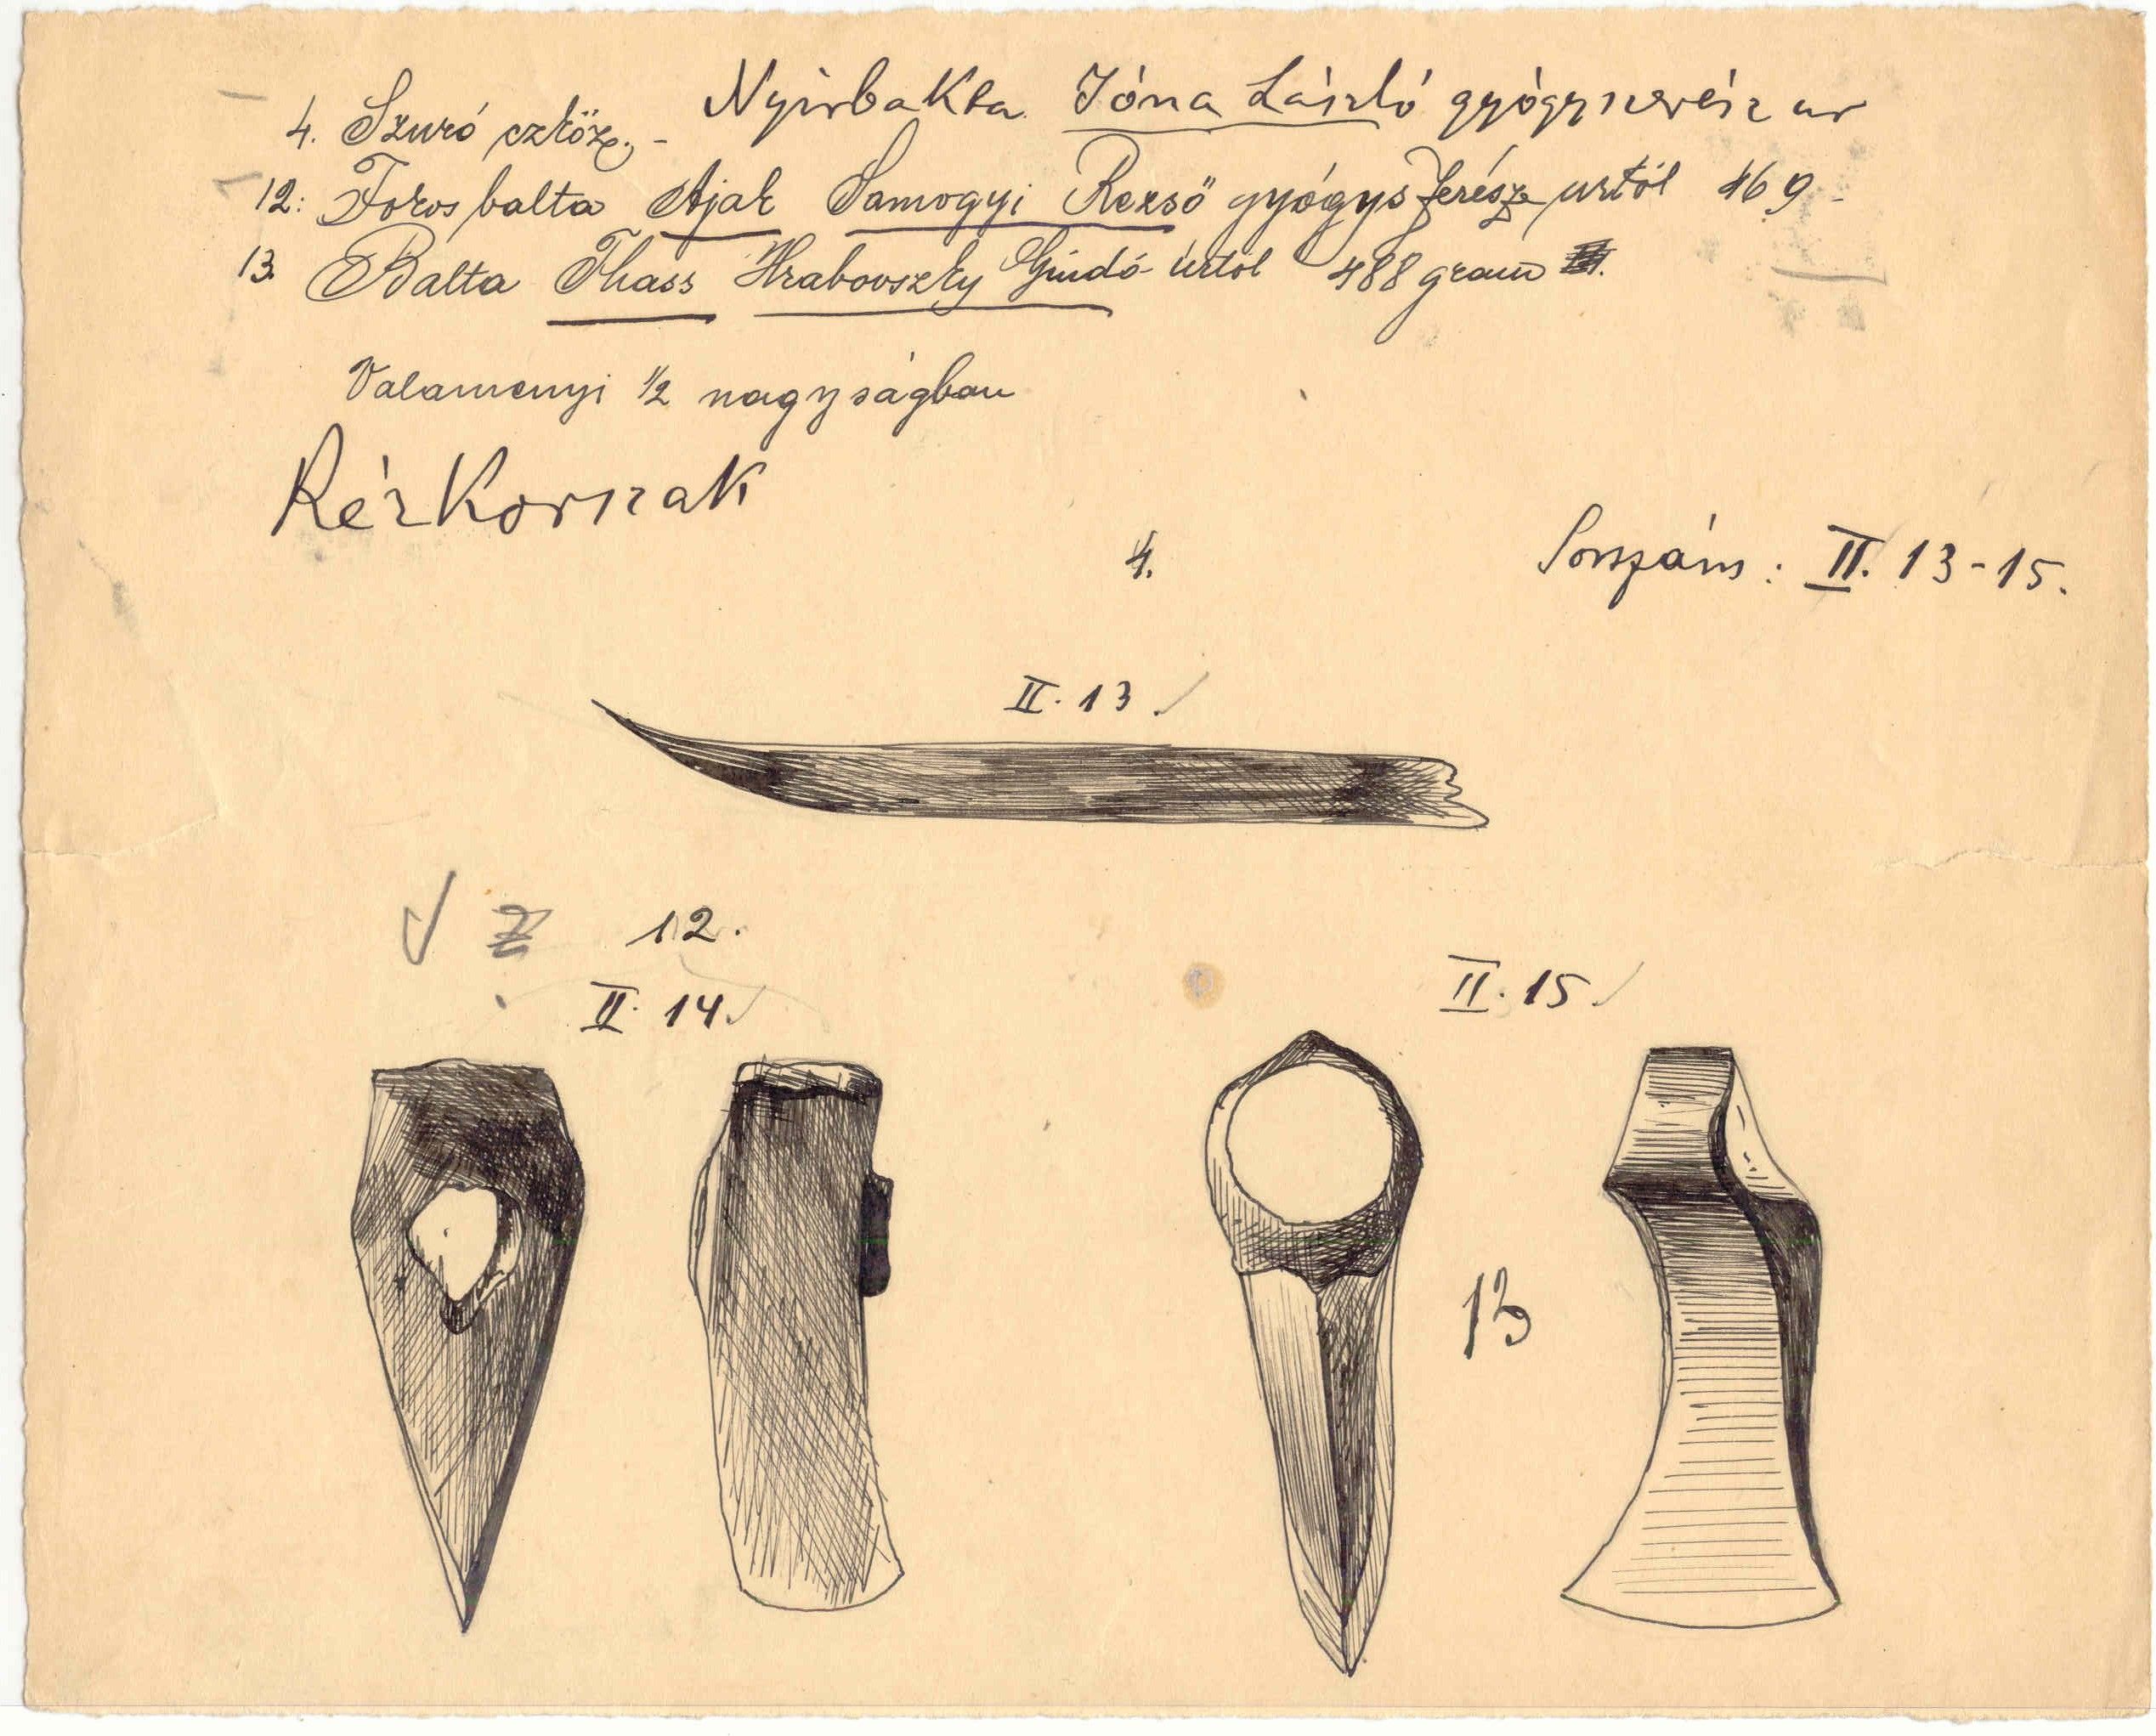 4. Szuró eszköz, - Nyirbakta Jóna László gyógyszerész ur
12: Fokos balta Ajak Somogyi Rezső gyógyszerész urtól 469 -
13. Balta Thass Hrabovszky Guidó úrtól 488 gram
Valamenyi 1/2 nagyságban
Rézkorszak
4.
Sorszám: II. 13-15.
II. 13
12.
II. 14.
II. 15.
13